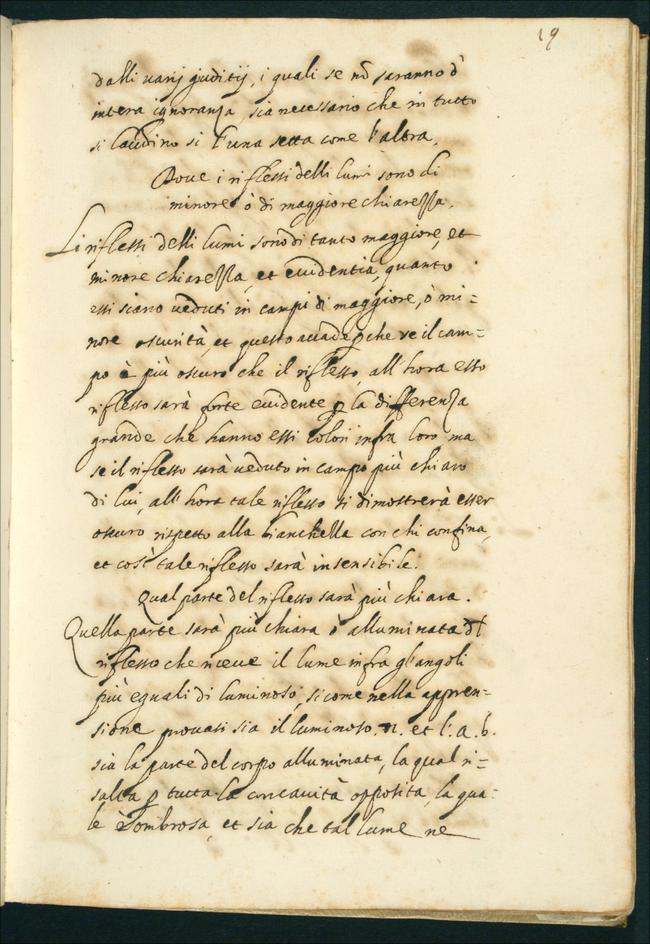 19
dalli varij giuditij, i quali se nõ saranno d'
intera ignoranza, sia necessario che in tutto
si laudino sì l'una setta come l'altra.
Dove i riflessi delli lumi sono di
minore ò di maggiore chiarezza.
Li riflessi delli lumi sono di tanto maggiore, et
minore chiarezza, et evidentia, quanto
essi siano veduti in campi di maggiore, ò mi=
nore oscurità, et questo accade p che se il cam=
po è più oscuro che il riflesso, all'hora esso
riflesso sarà forte evidente p la differenza
grande che hanno essi colori infra loro, ma
se il riflesso sarà veduto in campo più chiaro
di lui, all'hora tale riflesso si dimostrerà esser
oscuro rispetto alla bianchezza con chi confina,
et così tale riflesso sarà insensibile.
Qual parte del riflesso sarà più chiara.
Quella parte sarà più chiara ò alluminata dl
riflesso che riceve il lume infra gl'angoli
più eguali di luminoso, si come nella appren=
sione provasi sia il luminoso .n. et l'.a.b.
sia la parte del corpo alluminata, la qual ri=
salta p tutta la concavità opposita, la qua=
le è ombrosa, et sia che tal lume ne